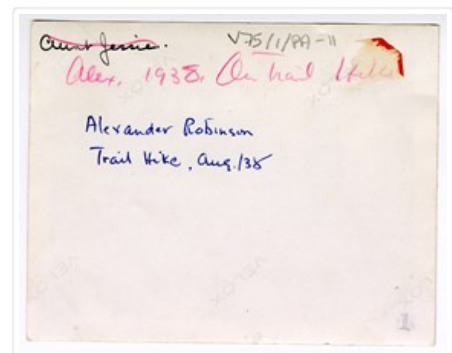 Aunt Jessie. V75/1/PA-11
Alex. 1938. On Trail Hike
Alexander Robinson
Trail Hike, Aug./38
VELOX
VELOX
VELOX
1